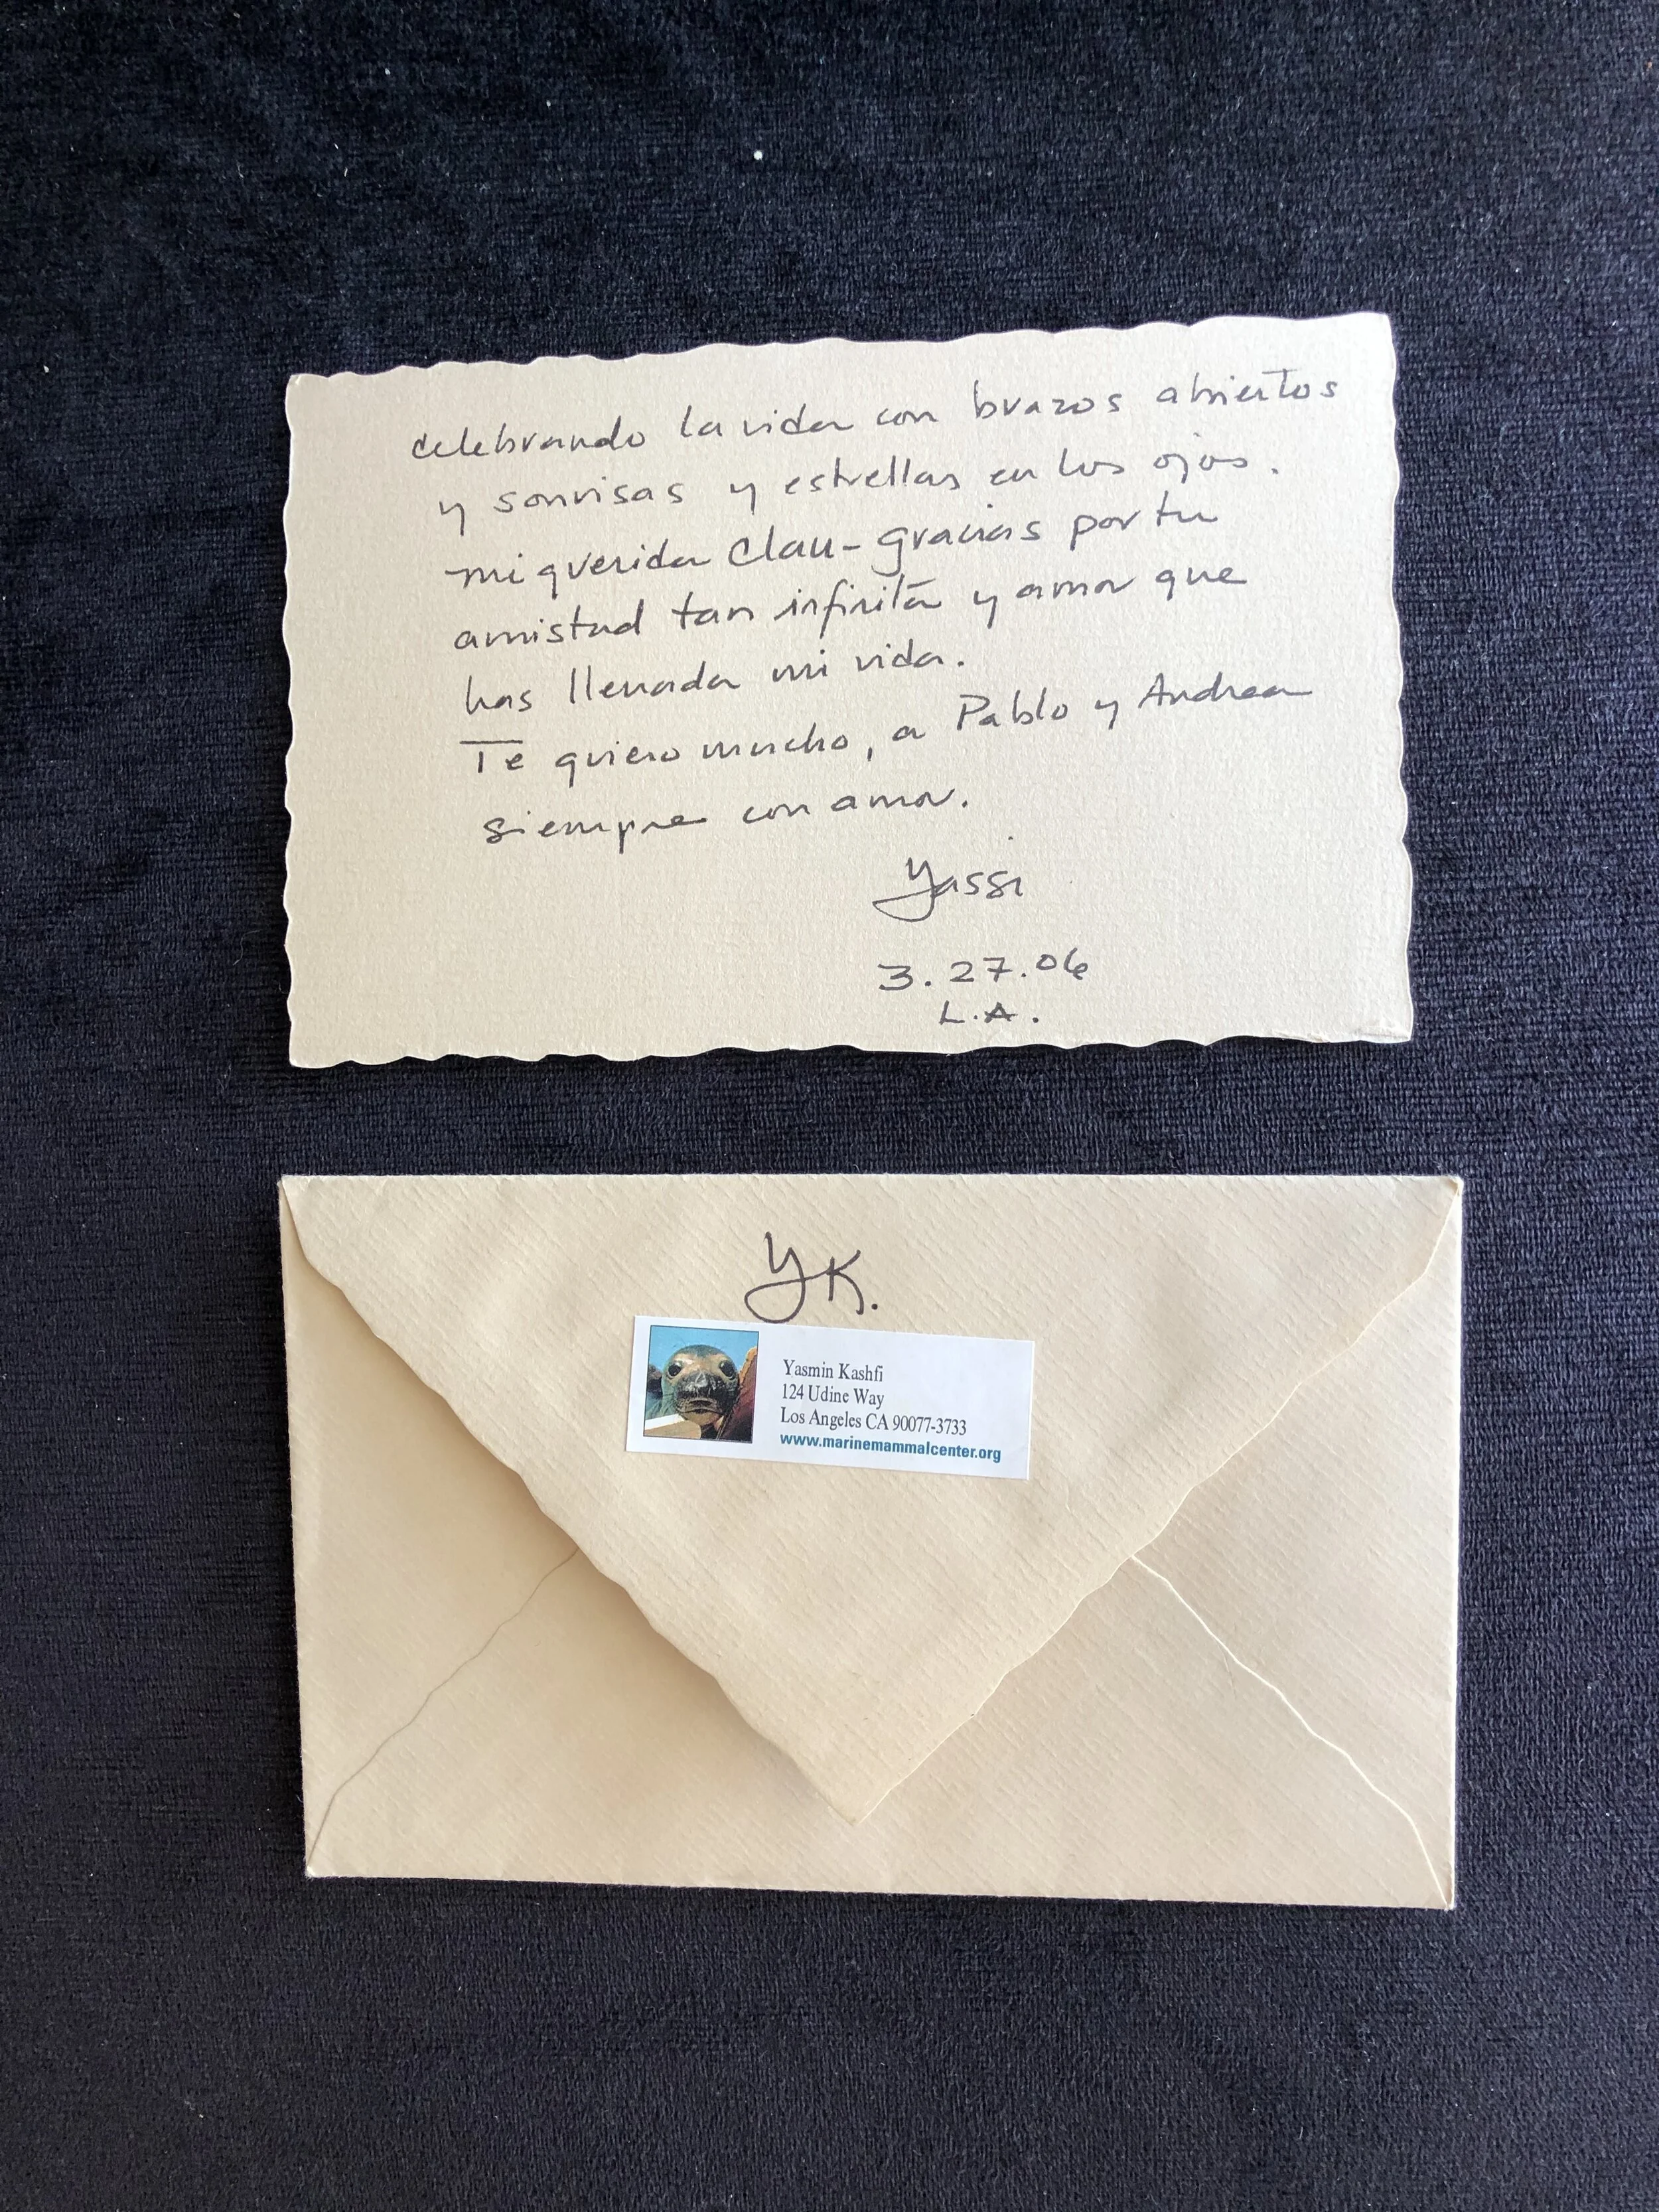 celebrando la vida con brazos abiertos
y sonrisas y estrellas en los ojos.
mi querida Clau - gracias por tu
amistad tan infinita y amor que
has llenada mi vida.
Te quiero mucho, a Pablo y Andrea
siempre con amor.
Yassi
3.27.06
L.A.
YK.
Yasmin Kashfi
124 Udine Way
Los Angeles CA 90077-3733
www.marinemammalcenter.org